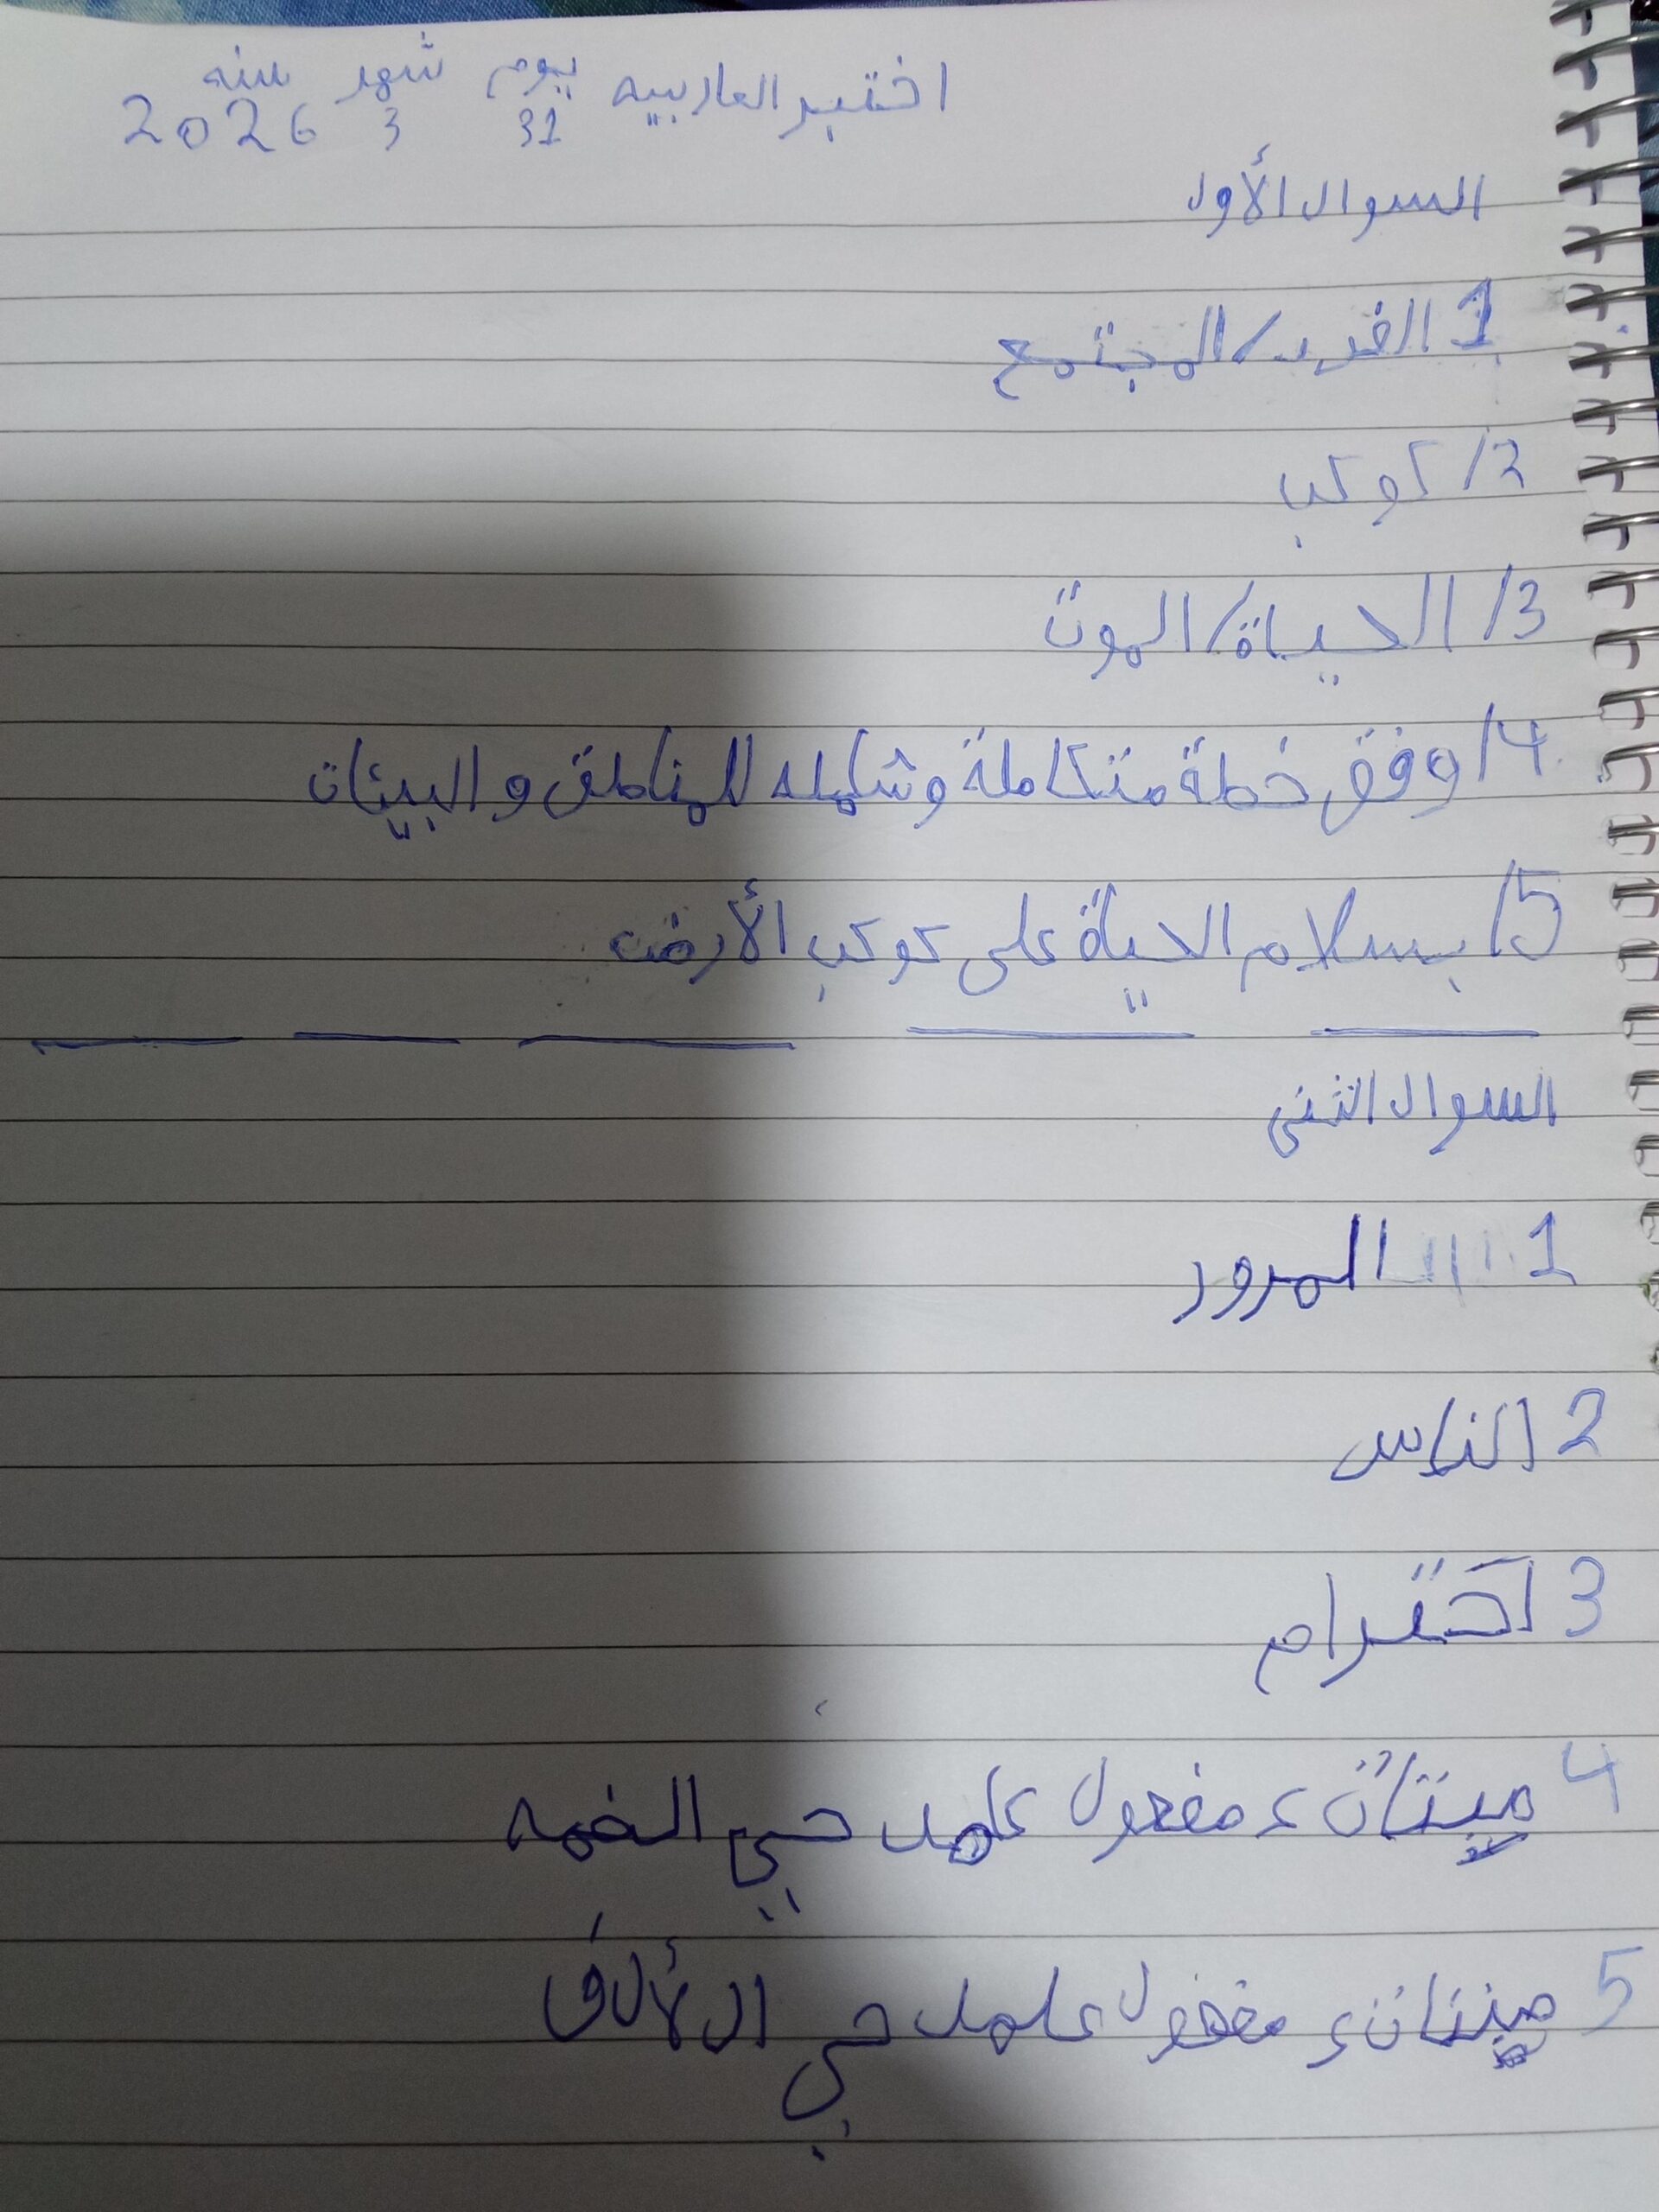 اختبر العاربيه يوم شهر سنه
31 3 2026
السوال الأول
1 الفرد/المجتمع
2/ كوكب
3/ الحياة/الموت
4/ وفق خطة متكاملة وشامله للمناطق والبيئات
5/ بسلام الحياة على كوكب الأرض
السوال الثني
1 المرور
2 الناس
3 احترام
4 مبتداء مفعول علمه حي الضمه
5 مبتداء مفعول علمه حي